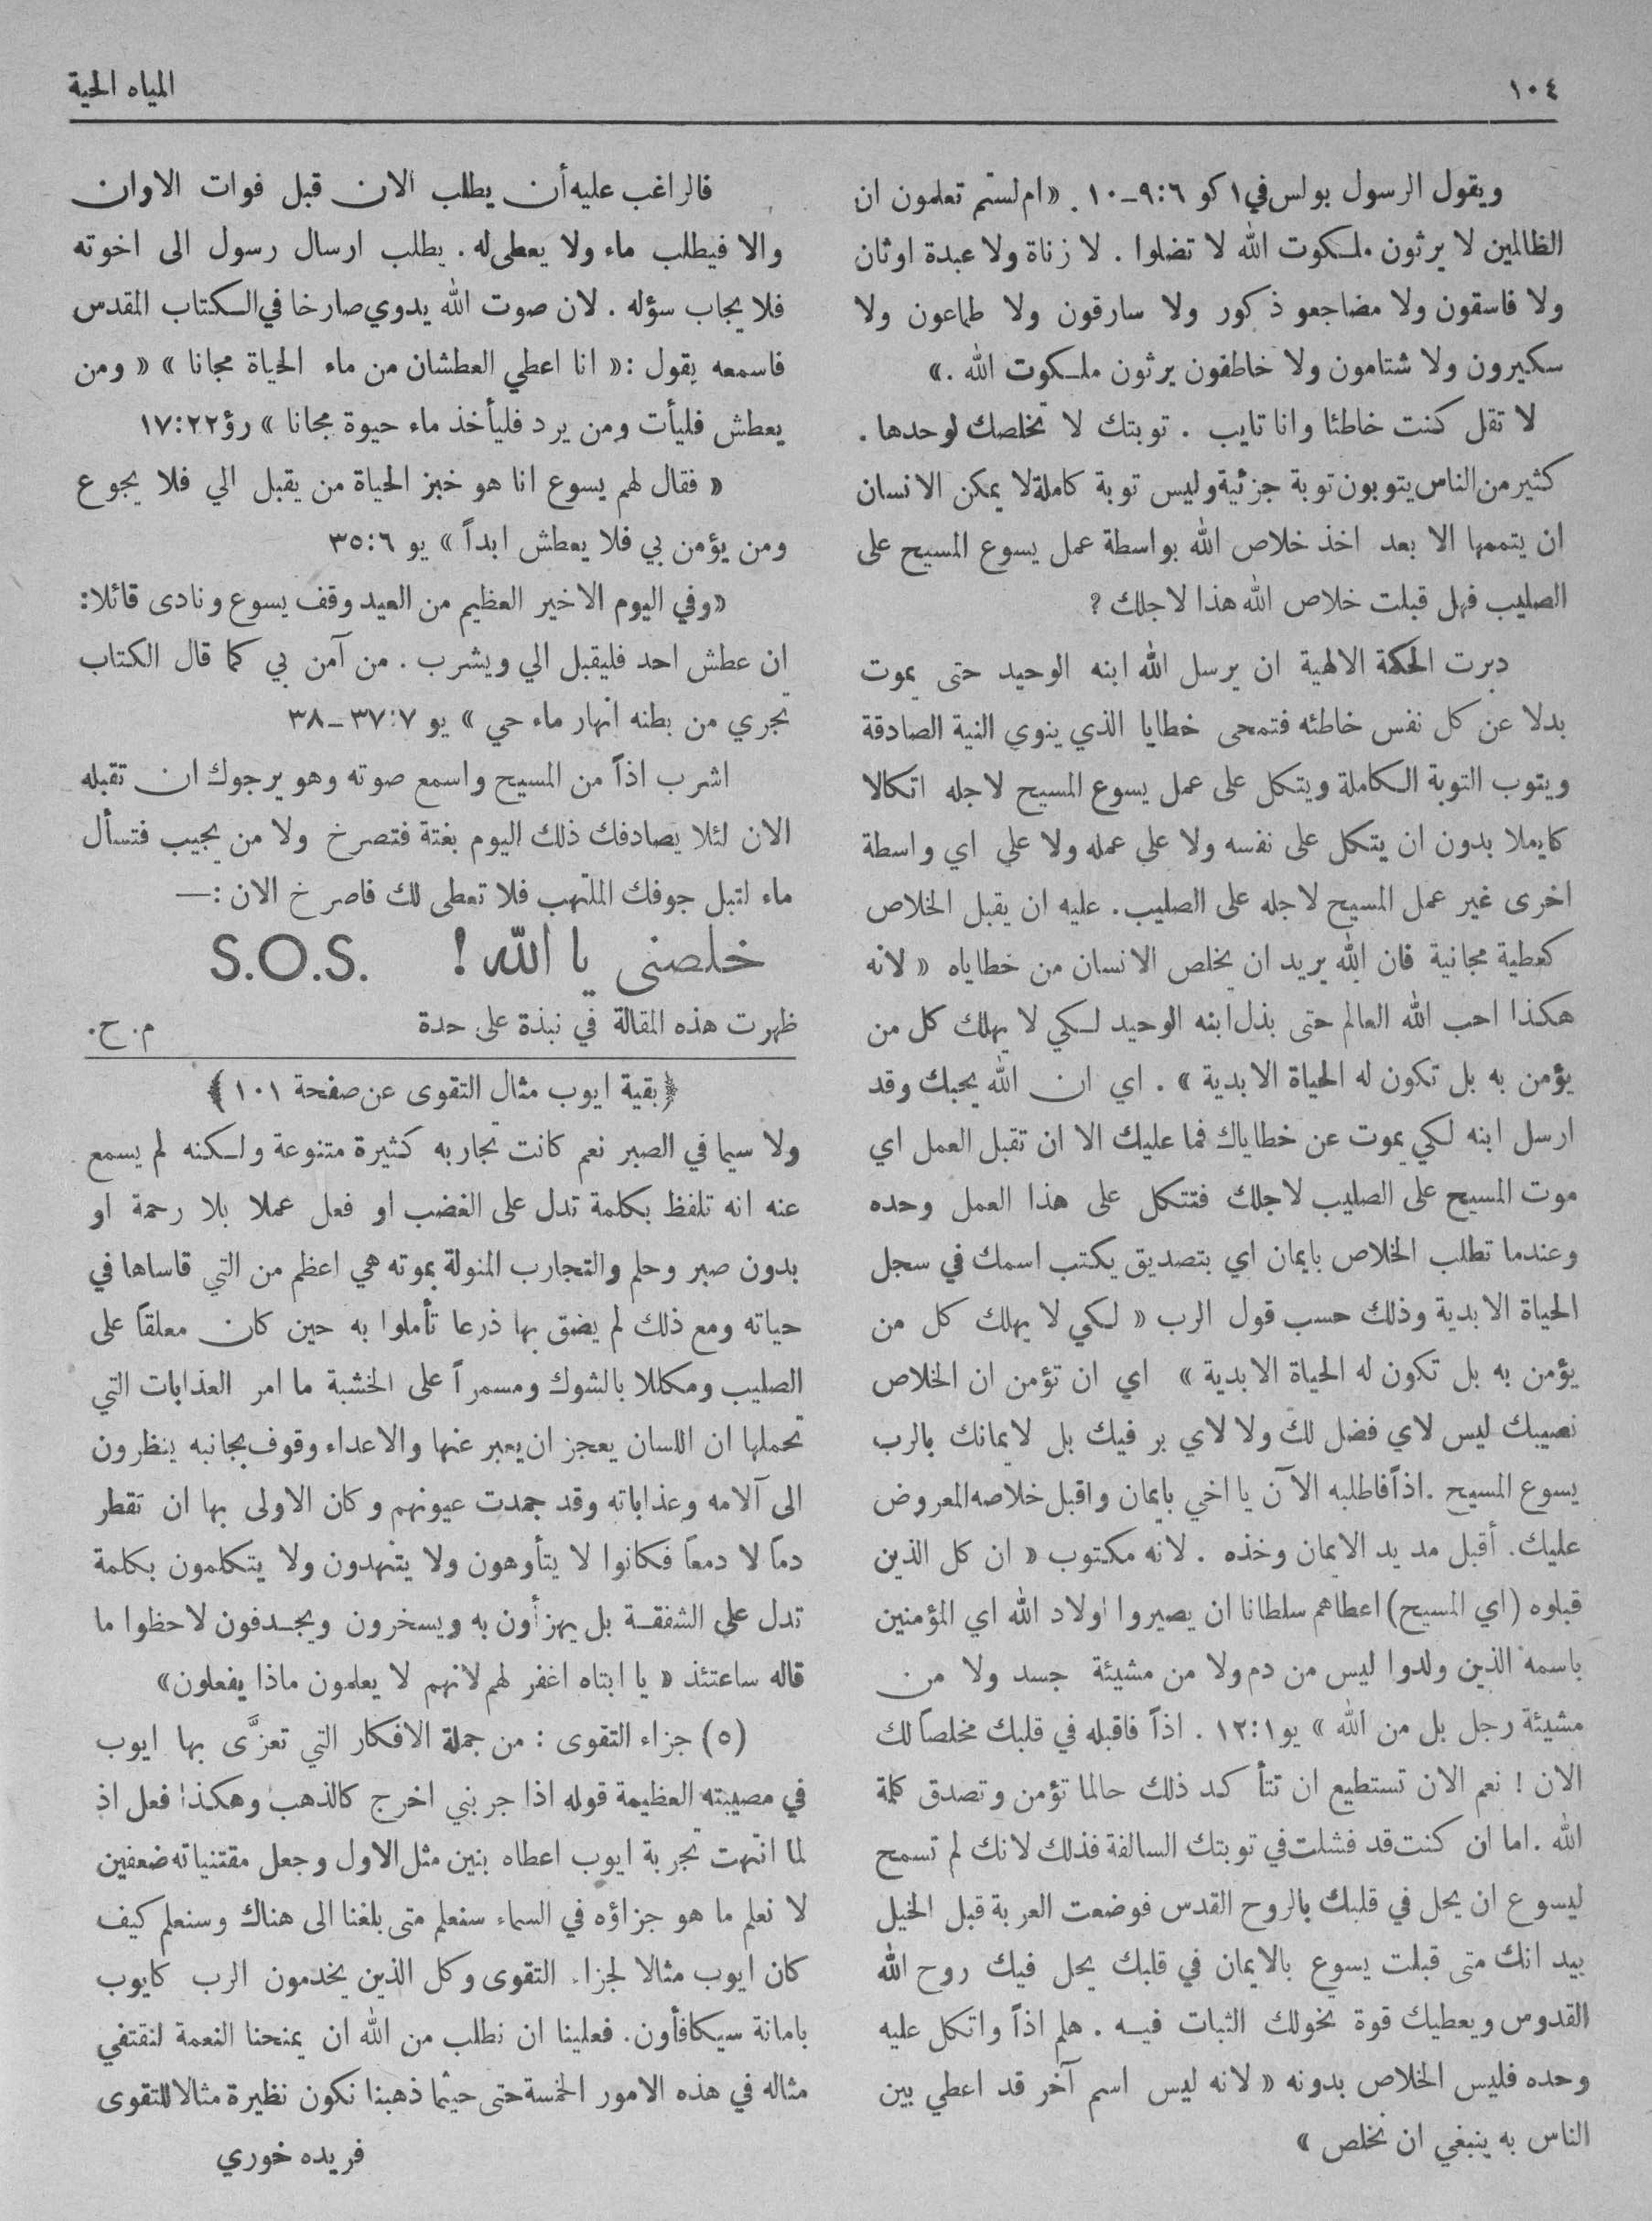 ١٠٤
المياه الحية
ويقول الرسول بولس في ١ كو ٦:٩-١٠ . « ام لستم تعلمون ان
الظالمين لا يرثون ملكوت الله لا تضلوا . لا زناة ولا عبدة اوثان
ولا فاسقون ولا مضاجعو ذكور ولا سارقون ولا طماعون ولا
سكيرون ولا شتامون ولا خاطفون يرثون ملكوت الله .»
لا تقل كنت خاطئا وانا تايب . توبتك لا تخلصك لوحدها .
كثير من الناس يتوبون توبة جزئية وليس توبة كاملة لا يمكن الانسان
ان يتممها الا بعد اخذ خلاص الله بواسطة عمل يسوع المسيح على
الصليب فهل قبلت خلاص الله هذا لاجلك ؟
دبرت الحكمة الالهية ان يرسل الله ابنه الوحيد حتى يموت
بدلا عن كل نفس خاطئه فتمحى خطايا الذي ينوي النية الصادقة
ويتوب التوبة الكاملة ويتكل على عمل يسوع المسيح لاجله اتكالا
كايملا بدون ان يتكل على نفسه ولا على عمله ولا على اي واسطة
اخرى غير عمل المسيح لاجله على الصليب . عليه ان يقبل الخلاص
كعطية مجانية فان الله يريد ان يخلص الانسان من خطاياه « لانه
هكذا احب الله العالم حتى بذل ابنه الوحيد لكي لا يهلك كل من
يؤمن به بل تكون له الحياة الابدية » . اي ان الله يحبك وقد
ارسل ابنه لكي يموت عن خطاياك فما عليك الا ان تقبل العمل اي
موت المسيح على الصليب لاجلك فتتكل على هذا العمل وحده
وعندما تطلب الخلاص بايمان اي بتصديق يكتب اسمك في سجل
الحياة الابدية وذلك حسب قول الرب « لكي لا يهلك كل من
يؤمن به بل تكون له الحياة الابدية » اي ان تؤمن ان الخلاص
نصيبك ليس لاي فضل لك ولا لاي بر فيك بل لايمانك بالرب
يسوع المسيح . اذاً فاطلبه الآن يا اخي بايمان واقبل خلاصه المعروض
عليك . أقبل مد يد الايمان وخذه . لانه مكتوب « ان كل الذين
قبلوه (اي المسيح) اعطاهم سلطانا ان يصيروا اولاد الله اي المؤمنين
باسمه الذين ولدوا ليس من دم ولا من مشيئة جسد ولا من
مشيئة رجل بل من الله » يو ١:١٢ . اذاً فاقبله في قلبك مخلصاً لك
الان ! نعم الان تستطيع ان تتأكد ذلك حالما تؤمن وتصدق كلمة
الله . اما ان كنت قد فشلت في توبتك السالفة فذلك لانك لم تسمح
ليسوع ان يحل في قلبك بالروح القدس فوضعت العربة قبل الخيل
بيد انك متى قبلت يسوع بالايمان في قلبك يحل فيك روح الله
القدوس ويعطيك قوة تخولك الثبات فيه . هلم اذاً واتكل عليه
وحده فليس الخلاص بدونه « لانه ليس اسم آخر قد اعطي بين
الناس به ينبغي ان نخلص »
فالراغب عليه أن يطلب الان قبل فوات الاوان
والا فيطلب ماء ولا يعطى له . يطلب ارسال رسول الى اخوته
فلا يجاب سؤله . لان صوت الله يدوي صارخا في الكتاب المقدس
فاسمعه يقول : « انا اعطي العطشان من ماء الحياة مجانا » « ومن
يعطش فليأت ومن يرد فليأخذ ماء حيوة مجانا » رؤ ٢٢:١٧
« فقال لهم يسوع انا هو خبز الحياة من يقبل الي فلا يجوع
ومن يؤمن بي فلا يعطش ابداً » يو ٦:٣٥
« وفي اليوم الاخير العظيم من العيد وقف يسوع ونادى قائلا :
ان عطش احد فليقبل الي ويشرب . من آمن بي كما قال الكتاب
تجري من بطنه انهار ماء حي » يو ٧:٣٧-٣٨
اشرب اذاً من المسيح واسمع صوته وهو يرجوك ان تقبله
الان لئلا يصادفك ذلك اليوم بغتة فتصرخ ولا من يجيب فتسأل
ماء لتبل جوفك الملتهب فلا تعطى لك فاصرخ الان :—
خلصني يا الله ! S.O.S.
ظهرت هذه المقالة في نبذة على حدة م. ح.
﴿ بقية ايوب مثال التقوى عن صفحة ١٠١ ﴾
ولا سيما في الصبر نعم كانت تجاربه كثيرة متنوعة ولكنه لم يسمع
عنه انه تلفظ بكلمة تدل على الغضب او فعل عملا بلا رحمة او
بدون صبر وحلم والتجارب المنولة بموته هي اعظم من التي قاساها في
حياته ومع ذلك لم يضق بها ذرعا تأملوا به حين كان معلقاً على
الصليب ومكللا بالشوك ومسمراً على الخشبة ما امر العذابات التي
تحملها ان اللسان يعجز ان يعبر عنها والاعداء وقوف بجانبه ينظرون
الى آلامه وعذاباته وقد جمدت عيونهم وكان الاولى بها ان تقطر
دماً لا دمعاً فكانوا لا يتأوهون ولا يتنهدون ولا يتكلمون بكلمة
تدل على الشفقة بل يهزأون به ويسخرون ويجدفون لاحظوا ما
قاله ساعتئذ « يا ابتاه اغفر لهم لانهم لا يعلمون ماذا يفعلون»
(٥) جزاء التقوى : من جملة الافكار التي تعزَّى بها ايوب
في مصيبته العظيمة قوله اذا جربني اخرج كالذهب وهكذا فعل اذ
لما انتهت تجربة ايوب اعطاه بنين مثل الاول وجعل مقتنياته ضعفين
لا نعلم ما هو جزاؤه في السماء سنعلم متى بلغنا الى هناك وسنعلم كيف
كان ايوب مثالا لجزاء التقوى وكل الذين يخدمون الرب كايوب
بامانة سيكافأون . فعلينا ان نطلب من الله ان يمنحنا النعمة لنقتفي
مثاله في هذه الامور الخمسة حتى حيثما ذهبنا نكون نظيرة مثالا للتقوى
فريده خوري